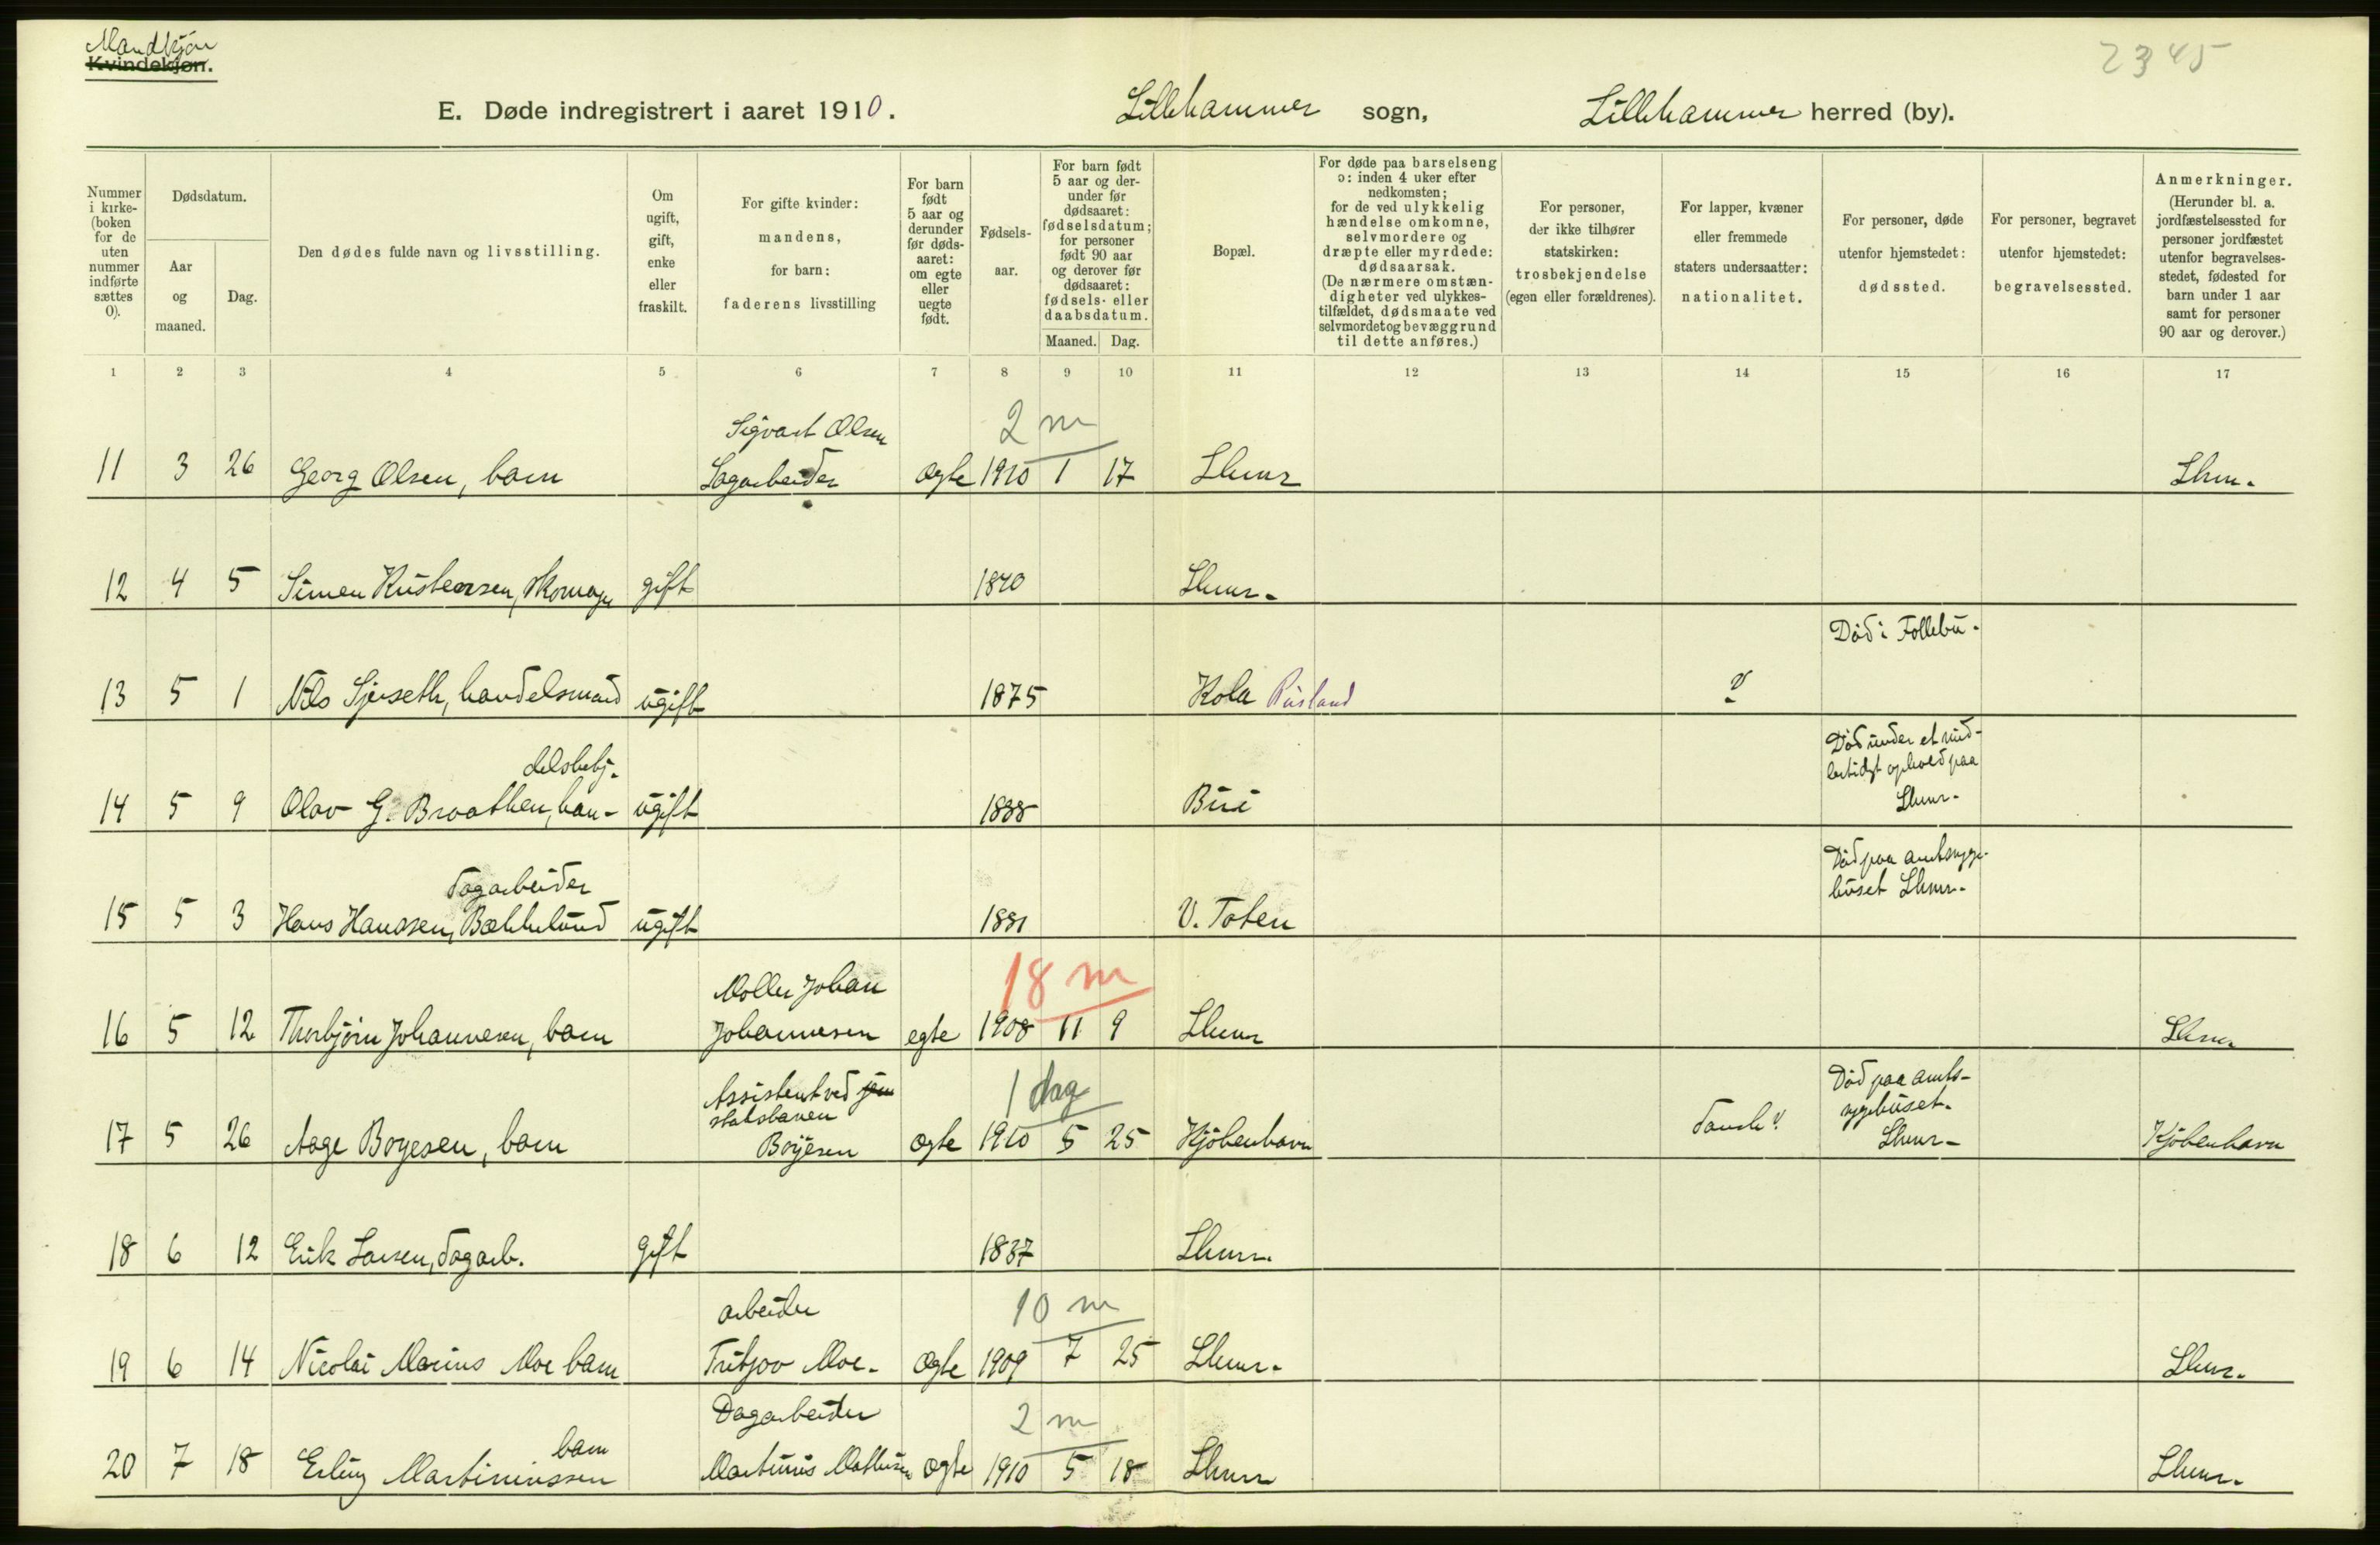 Mandkjøn
Kvindekjøn.
2345
E. Døde indregistrert i aaret 1910.
Lillehammer sogn,
Lillehammer herred (by).
Nummer i kirke-(boken for de uten nummer indførte sættes 0).
Dødsdatum.
Aar og maaned.
Dag.
Den dødes fulde navn og livsstilling.
Om ugift, gift, enke eller fraskilt.
For gifte kvinder: mandens, for barn: faderens livsstilling
For barn født 5 aar og derunder før døds-aaret: om egte eller uegte født.
Fødsels-aar.
For barn født 5 aar og der-under før dødsaaret: fødselsdatum; for personer født 90 aar og derover før dødsaaret: fødsels- eller daabsdatum.
Maaned. Dag.
Bopæl.
For døde paa barselseng ɔ: inden 4 uker efter nedkomsten; for de ved ulykkelig hændelse omkomne, selvmordere og dræpte eller myrdede: dødsaarsak. (De nærmere omstæn-digheter ved ulykkes-tilfældet, dødsmaate ved selvmord et og bevæggrund til dette anføres.)
For personer, der ikke tilhører statskirken: trosbekjendelse (egen eller forældrenes).
For lapper, kvæner eller fremmede staters undersaatter: nationalitet.
For personer, døde utenfor hjemstedet: dødssted.
For personer, begravet utenfor hjemstedet: begravelsessted.
Anmerkninger. (Herunder bl. a. jordfæstelsessted for personer jordfæstet utenfor begravelses-stedet, fødested for barn under 1 aar samt for personer 90 aar og derover.)
1 2 3 4 5 6 7 8 9 10 11 12 13 14 15 16 17
Sigvart Olsen 2 m
11 3 26 Georg Olsen, barn Sagarbeider ægte 1910 1 17 Lhmr Lhm.
12 4 5 Simen Kristensen, skomager gift 1840 Lhmr.
Död i Follebu.
13 5 1 Nils Sjerseth, handelsmand ugift 1875 Kola Rusland ?
delsbetj. Död under et mid-
lertidigt ophold paa
14 5 9 Olav G. Braathen, han- ugift 1888 Biri Lhmr.
Dagarbeider Död paa amtssyge-
huset Lhmr.
15 5 3 Hans Hanssen, Bækkelund ugift 1881 V. Toten
Møller Johan 18 m
16 5 12 Thorbjörn Johannesen, barn Johannesen egte 1908 11 9 Lhmr Lhmr
Assistent ved jern 1 dag Död paa amts-
statsbanen sygehuset.
17 5 26 Aage Boyesen, barn Boyesen ægte 1910 5 25 Kjöbenhavn Dansk ?. Lhmr. Kjöbenhavn
18 6 12 Erik Larsen, dagarb. gift 1837 Lhmr.
arbeider 10 m
19 6 14 Nicolai Marius Moe barn Fritjov Moe. ægte 1909 7 25 Lhmr. Lhmr.
Dagarbeider 2 m
barn
20 7 18 Erling Martiniussen Martinius Mathisen ægte 1910 5 18 Lhmr Lhmr.